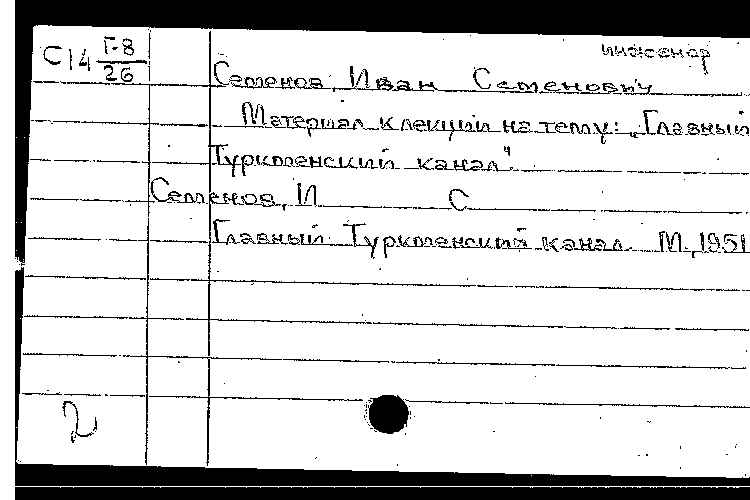 инженер
С14 Г-8
26
Семенов, Иван Семенович
Материал к лекции на тему: „Главный
Туркменский канал".
Семенов, И С
Главный Туркменский канал. М., 1951
2